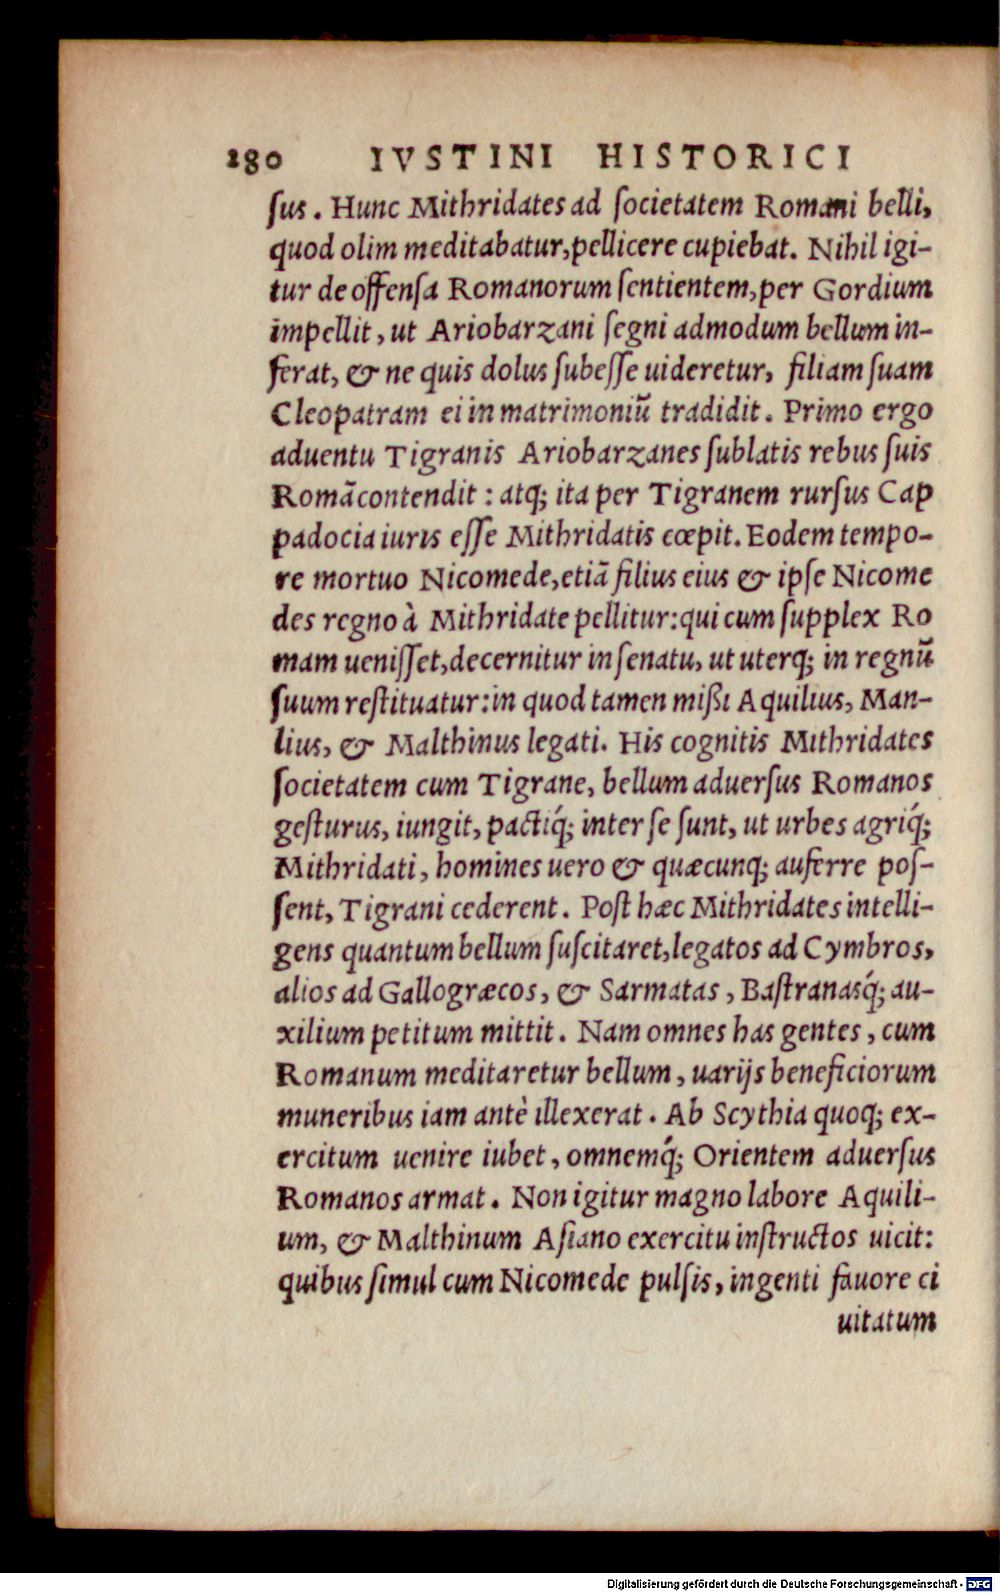 280 IVSTINI HISTORICI
ſus. Hunc Mithridates ad ſocietatem Romani belli,
quod olim meditabatur, pellicere cupiebat. Nihil igi-
tur de offenſa Romanorum ſentientem, per Gordium
impellit, ut Ariobarzani ſegni admodum bellum in-
ferat, & ne quis dolus ſubeſſe uideretur, filiam ſuam
Cleopatram ei in matrimoniũ tradidit. Primo ergo
aduentu Tigranis Ariobarzanes ſublatis rebus ſuis
Romã contendit: atq; ita per Tigranem rurſus Cap
padocia iuris eſſe Mithridatis cœpit. Eodem tempo-
re mortuo Nicomede, etiã filius eius & ipſe Nicome
des regno à Mithridate pellitur: qui cum ſupplex Ro
mam ueniſſet, decernitur in ſenatu, ut uterq; in regnũ
ſuum reſtituatur: in quod tamen mißi Aquilius, Man-
lius, & Malthinus legati. His cognitis Mithridates
ſocietatem cum Tigrane, bellum aduerſus Romanos
geſturus, iungit, pactiq́; inter ſe ſunt, ut urbes agriq́;
Mithridati, homines uero & quæcunq; auferre poſ-
ſent, Tigrani cederent. Poſt hæc Mithridates intelli-
gens quantum bellum ſuſcitaret, legatos ad Cymbros,
alios ad Gallogræcos, & Sarmatas, Baſtranasq́; au-
xilium petitum mittit. Nam omnes has gentes, cum
Romanum meditaretur bellum, uarijs beneficiorum
muneribus iam antè illexerat. Ab Scythia quoq; ex-
ercitum uenire iubet, omnemq́; Orientem aduerſus
Romanos armat. Non igitur magno labore Aquili-
um, & Malthinum Aſiano exercitu inſtructos uicit:
quibus ſimul cum Nicomede pulſis, ingenti fauore ci
uitatum
Digitalisierung gefördert durch die Deutsche Forschungsgemeinschaft - DFG